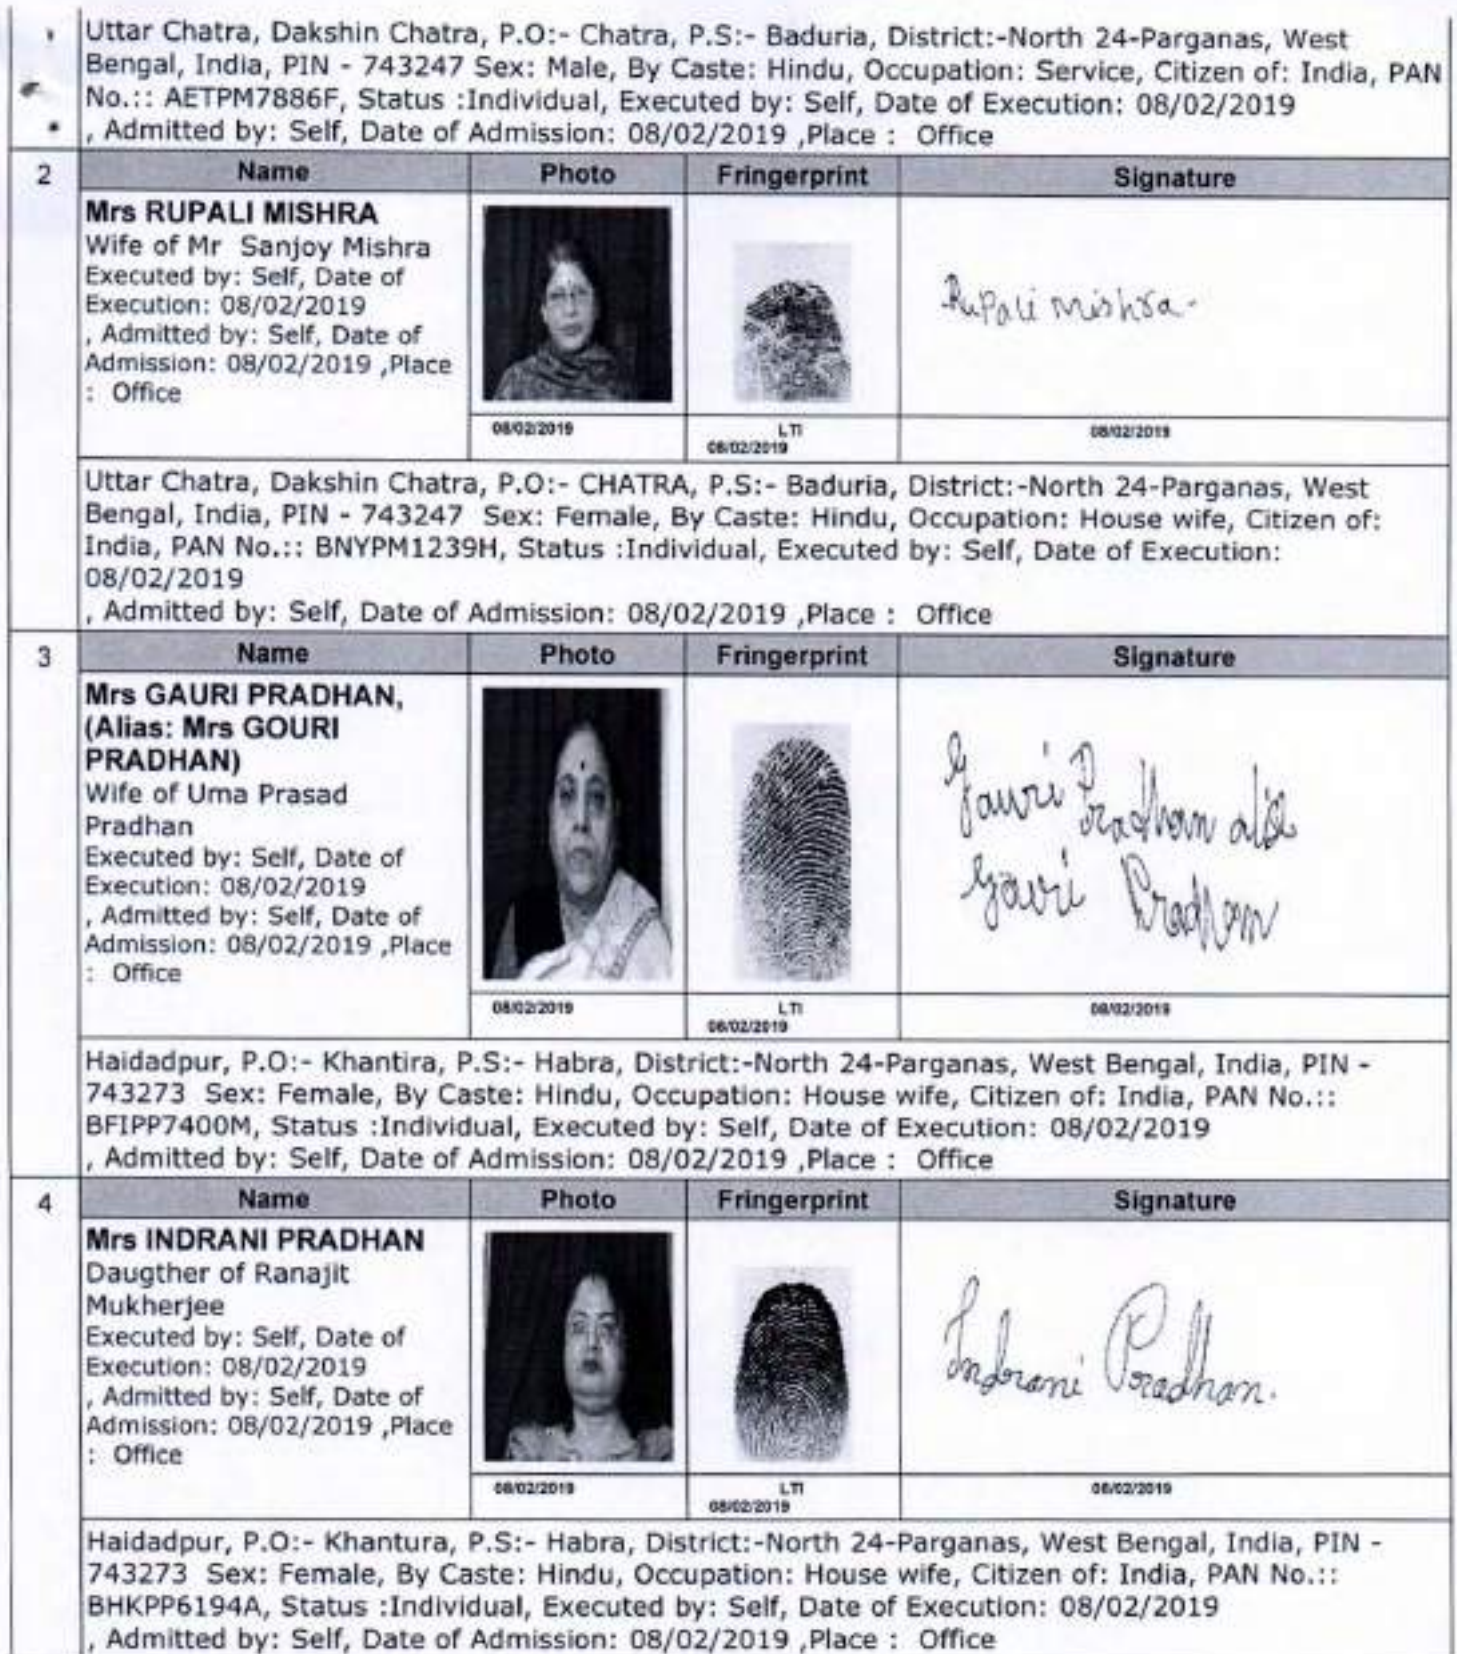 Uttar Chatra, Dakshin Chatra, P.O:- Chatra, P.S:- Baduria, District:-North 24-Parganas, West
Bengal, India, PIN - 743247 Sex: Male, By Caste: Hindu, Occupation: Service, Citizen of: India, PAN
No.:: AETPM7886F, Status :Individual, Executed by: Self, Date of Execution: 08/02/2019
, Admitted by: Self, Date of Admission: 08/02/2019 ,Place : Office
2 Name Photo Fringerprint Signature
Mrs RUPALI MISHRA
Wife of Mr Sanjoy Mishra
Executed by: Self, Date of
Execution: 08/02/2019
, Admitted by: Self, Date of
Admission: 08/02/2019 ,Place
: Office
Rupali Mishra-
08/02/2019 LTI 08/02/2019
08/02/2019
Uttar Chatra, Dakshin Chatra, P.O:- CHATRA, P.S:- Baduria, District:-North 24-Parganas, West
Bengal, India, PIN - 743247 Sex: Female, By Caste: Hindu, Occupation: House wife, Citizen of:
India, PAN No.:: BNYPM1239H, Status :Individual, Executed by: Self, Date of Execution:
08/02/2019
, Admitted by: Self, Date of Admission: 08/02/2019 ,Place : Office
3 Name Photo Fringerprint Signature
Mrs GAURI PRADHAN,
(Alias: Mrs GOURI
PRADHAN)
Wife of Uma Prasad
Pradhan
Executed by: Self, Date of
Execution: 08/02/2019
, Admitted by: Self, Date of
Admission: 08/02/2019 ,Place
: Office
Gauri Pradhan
Pradhan
08/02/2019 LTI 08/02/2019
08/02/2019
Haidadpur, P.O:- Khantira, P.S:- Habra, District:-North 24-Parganas, West Bengal, India, PIN -
743273 Sex: Female, By Caste: Hindu, Occupation: House wife, Citizen of: India, PAN No.::
BFIPP7400M, Status :Individual, Executed by: Self, Date of Execution: 08/02/2019
, Admitted by: Self, Date of Admission: 08/02/2019 ,Place : Office
4 Name Photo Fringerprint Signature
Mrs INDRANI PRADHAN
Daugther of Ranajit
Mukherjee
Executed by: Self, Date of
Execution: 08/02/2019
, Admitted by: Self, Date of
Admission: 08/02/2019 ,Place
: Office
Indrani Pradhan.
08/02/2019 LTI 08/02/2019
08/02/2019
Haidadpur, P.O:- Khantura, P.S:- Habra, District:-North 24-Parganas, West Bengal, India, PIN -
743273 Sex: Female, By Caste: Hindu, Occupation: House wife, Citizen of: India, PAN No.::
BHKPP6194A, Status :Individual, Executed by: Self, Date of Execution: 08/02/2019
, Admitted by: Self, Date of Admission: 08/02/2019 ,Place : Office